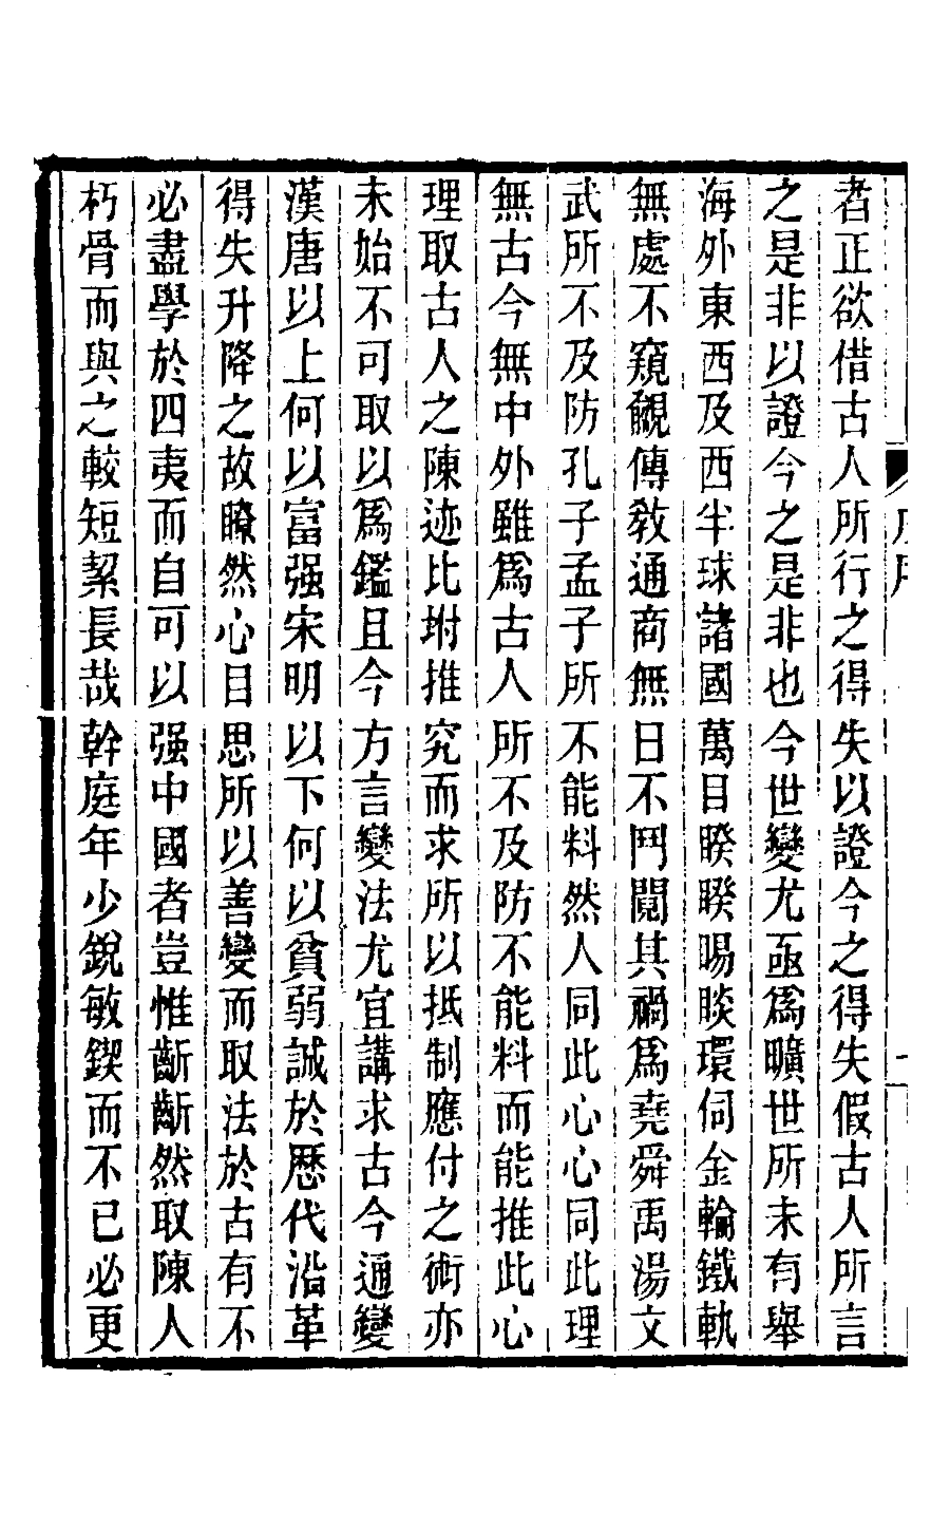 者正欲借古人所行之得失以證今之得失假古人所言
之是非以證今之是非也今世變尤亟爲曠世所未有舉
海外東西及西半球諸國萬目睽睽暘睒環伺金輪鐵軌
無處不窺覦傳敎通商無日不鬥鬩其禍爲堯舜禹湯文
武所不及防孔子孟子所不能料然人同此心心同此理
無古今無中外雖爲古人所不及防不能料而能推此心
理取古人之陳迹比坿推究而求所以抵制應付之術亦
未始不可取以爲鑑且今方言變法尤宜講求古今通變
漢唐以上何以富强宋明以下何以貧弱誠於歷代沿革
得失升降之故瞭然心目思所以善變而取法於古有不
必盡學於四夷而自可以强中國者豈惟齗齗然取陳人
朽骨而與之較短絜長哉幹庭年少銳敏鍥而不已必更